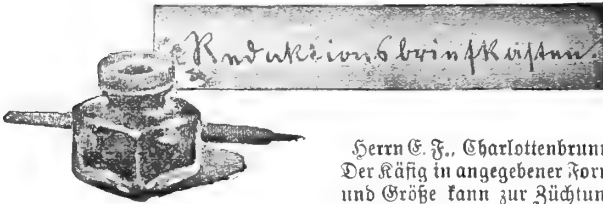 Redaktionsbriefkasten
Herrn E. F., Charlottenbrunn
Der Käfig in angegebener Form
und Größe kann zur Züchtun